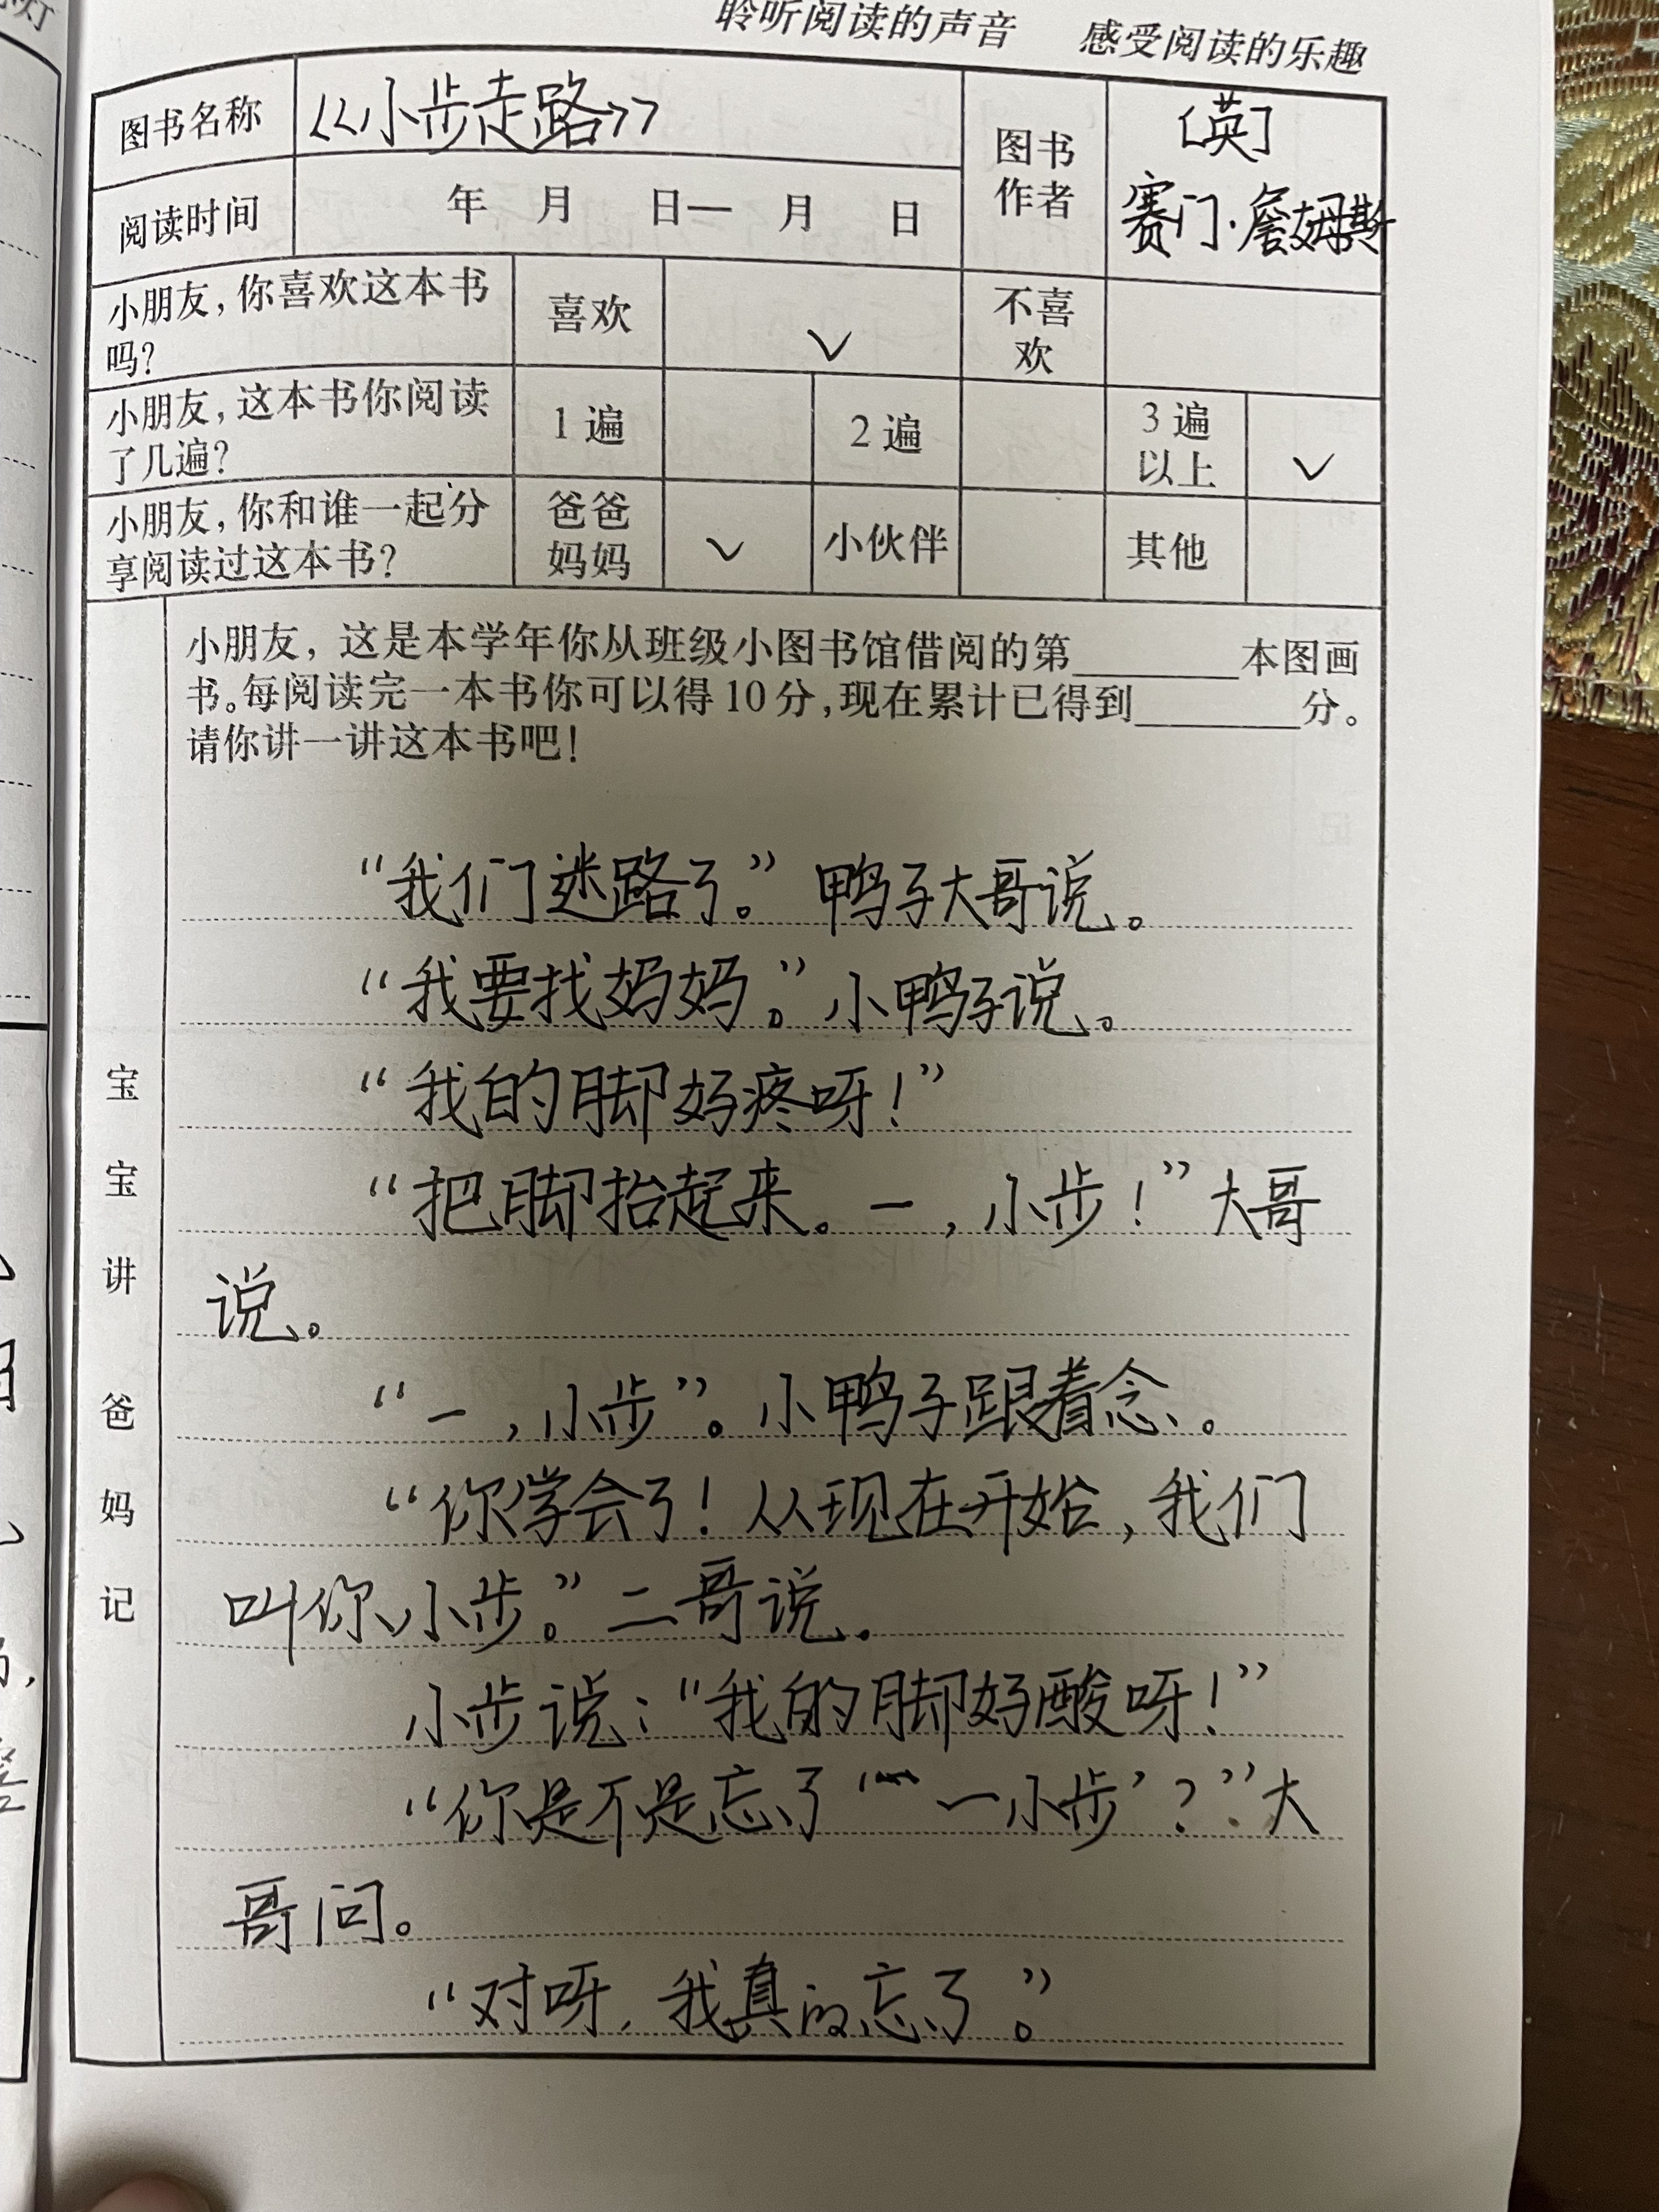 聆听阅读的声音 感受阅读的乐趣
图书名称 《小步走路》 图书作者 [英]赛门·詹姆斯
阅读时间 年 月 日— 月 日
小朋友,你喜欢这本书吗? 喜欢 ✓ 不喜欢
小朋友,这本书你阅读了几遍? 1遍 2遍 3遍以上 ✓
小朋友,你和谁一起分享阅读过这本书? 爸爸妈妈 ✓ 小伙伴 其他
小朋友,这是本学年你从班级小图书馆借阅的第______本图画
书。每阅读完一本书你可以得10分,现在累计已得到______分。
请你讲一讲这本书吧!
宝宝讲 爸妈记
“我们迷路了。”鸭子大哥说。
“我要找妈妈。”小鸭子说。
“我的脚好疼呀!”
“把脚抬起来。一,小步!”大哥
说。
“一,小步”。小鸭子跟着念。
“你学会了!从现在开始,我们
叫你小步。”二哥说.
小步说:“我的脚好酸呀!”
“你是不是忘了‘一小步’?”大
哥问。
“对呀,我真的忘了。”